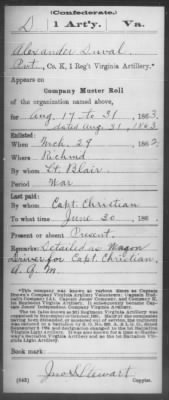 (Confederate.)
D 1 Art'y. Va.
Alexander Duval
Pvt, Co. K, 1 Reg't Virginia Artillery.*
Appears on
Company Muster Roll
of the organization named above,
for Aug 17 to 31, 1863.
dated Aug. 31, 1863
Enlisted:
When Mch. 29, 1862.
Where Richmd
By whom Lt. Blair.
Period War
Last paid:
By whom Capt. Christian
To what time June 30, 186
Present or absent Present.
Remarks: Detailed as Wagon
Driver for Capt. Christian,
A. Q. M.
*This company was known at various times as Captain
Book mark:
Jno S Stewart
(642) Copyist.